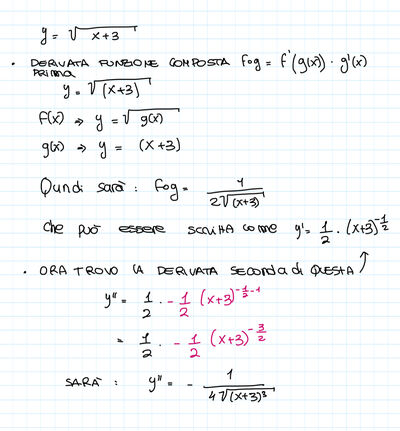 y = √x+3
• DERIVATA FUNZIONE COMPOSTA fog = f'(g(x)) · g'(x)
PRIMA
y = √(x+3)
f(x) ⇒ y = √g(x)
g(x) ⇒ y = (x+3)
Qundi sarà : fog = 1/2√(x+3)
che può essere scritta come y' = 1/2 · (x+3)^-1/2
• ORA TROVO LA DERIVATA SECONDA di QUESTA ↑
y'' = 1/2 · - 1/2 (x+3)^-1/2-1
= 1/2 · - 1/2 (x+3)^-3/2
SARÀ : y'' = - 1/4√(x+3)³